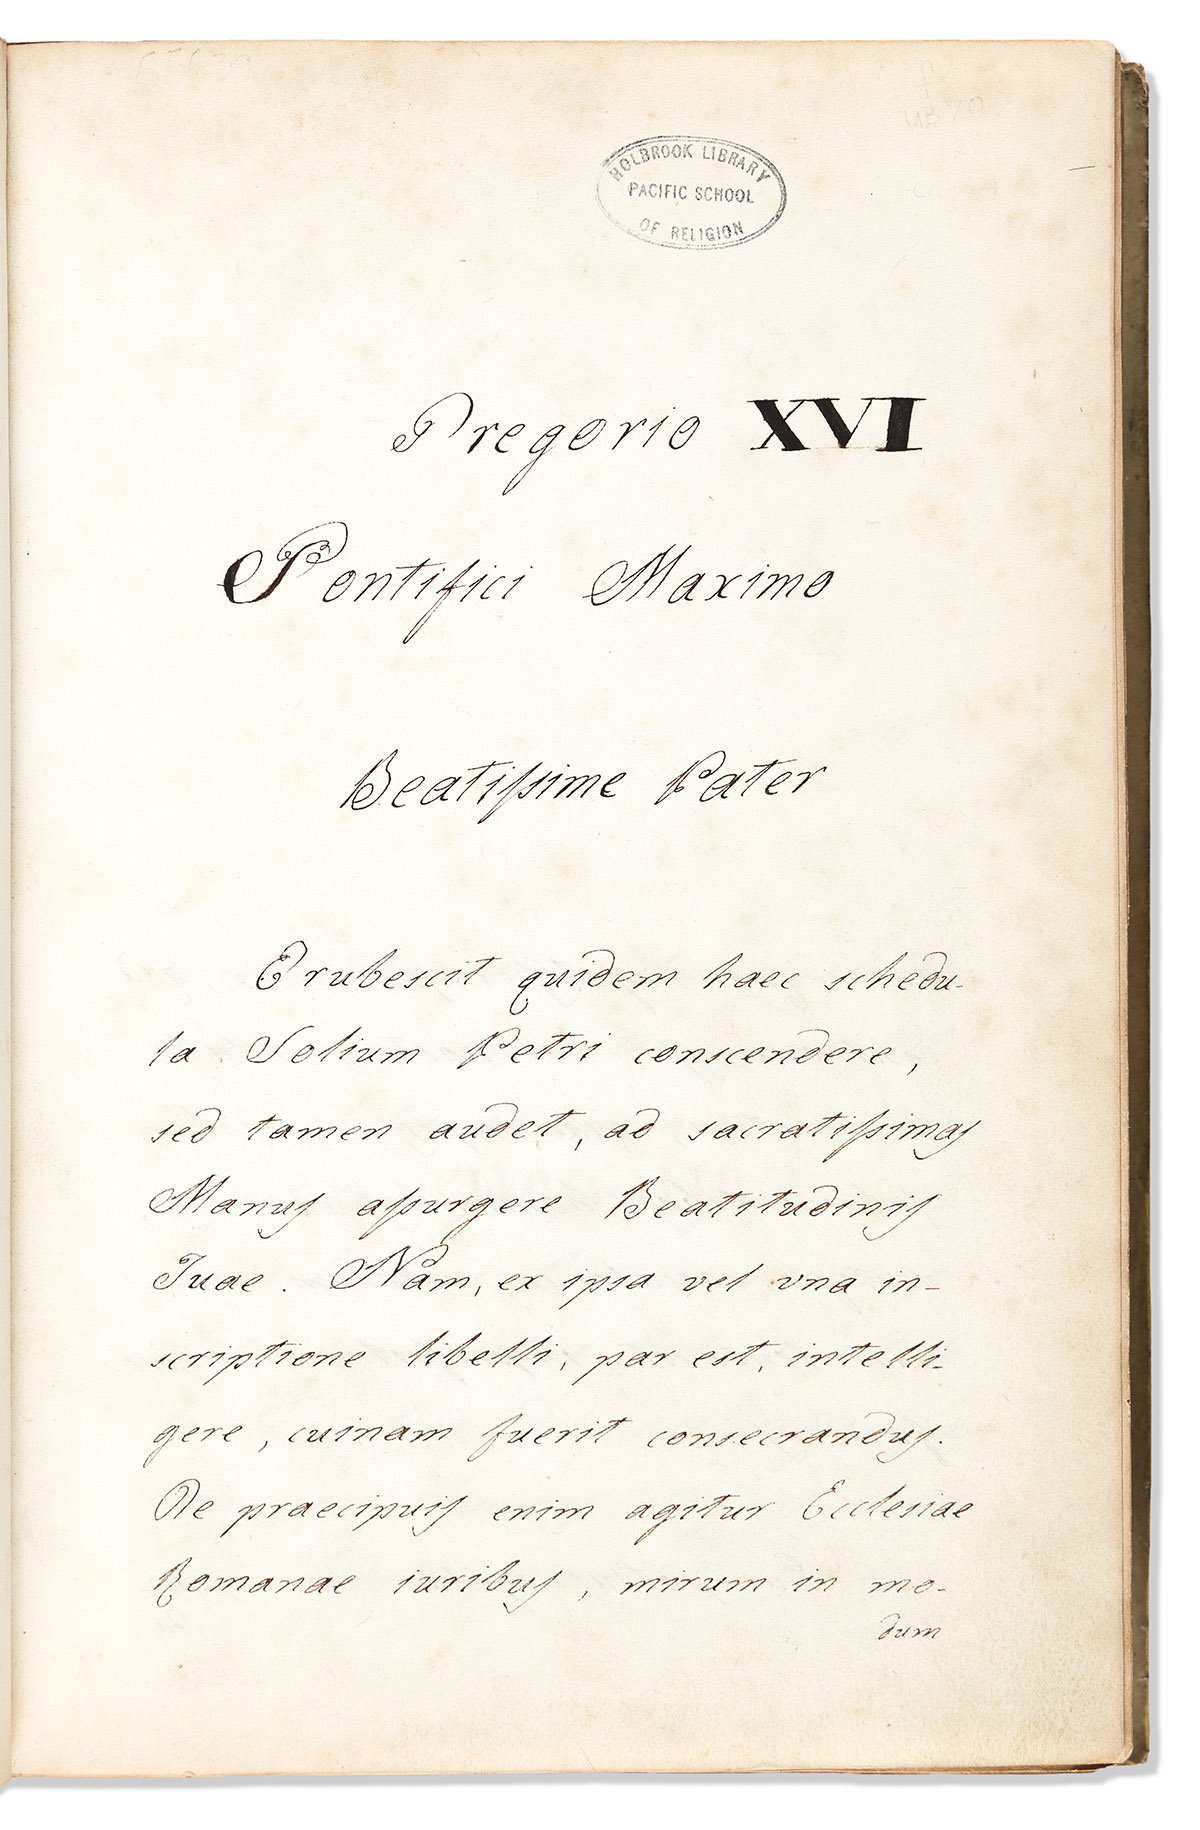 HOLBROOK LIBRARY
PACIFIC SCHOOL
OF RELIGION
Gregorio XVI
Pontifici Maximo
Beatissime Pater
Erubescit quidem haec schedu-
la Solium Petri conscendere,
sed tamen audet, ad sacratissimas
Manus assurgere Beatitudinis
Tuae. Nam, ex ipsa vel vna in-
scriptione libelli, par est, intelli-
gere, cuinam fuerit consecrandus.
De praecipuis enim agitur Ecclesiae
Romanae iuribus, mirum in mo-
dum